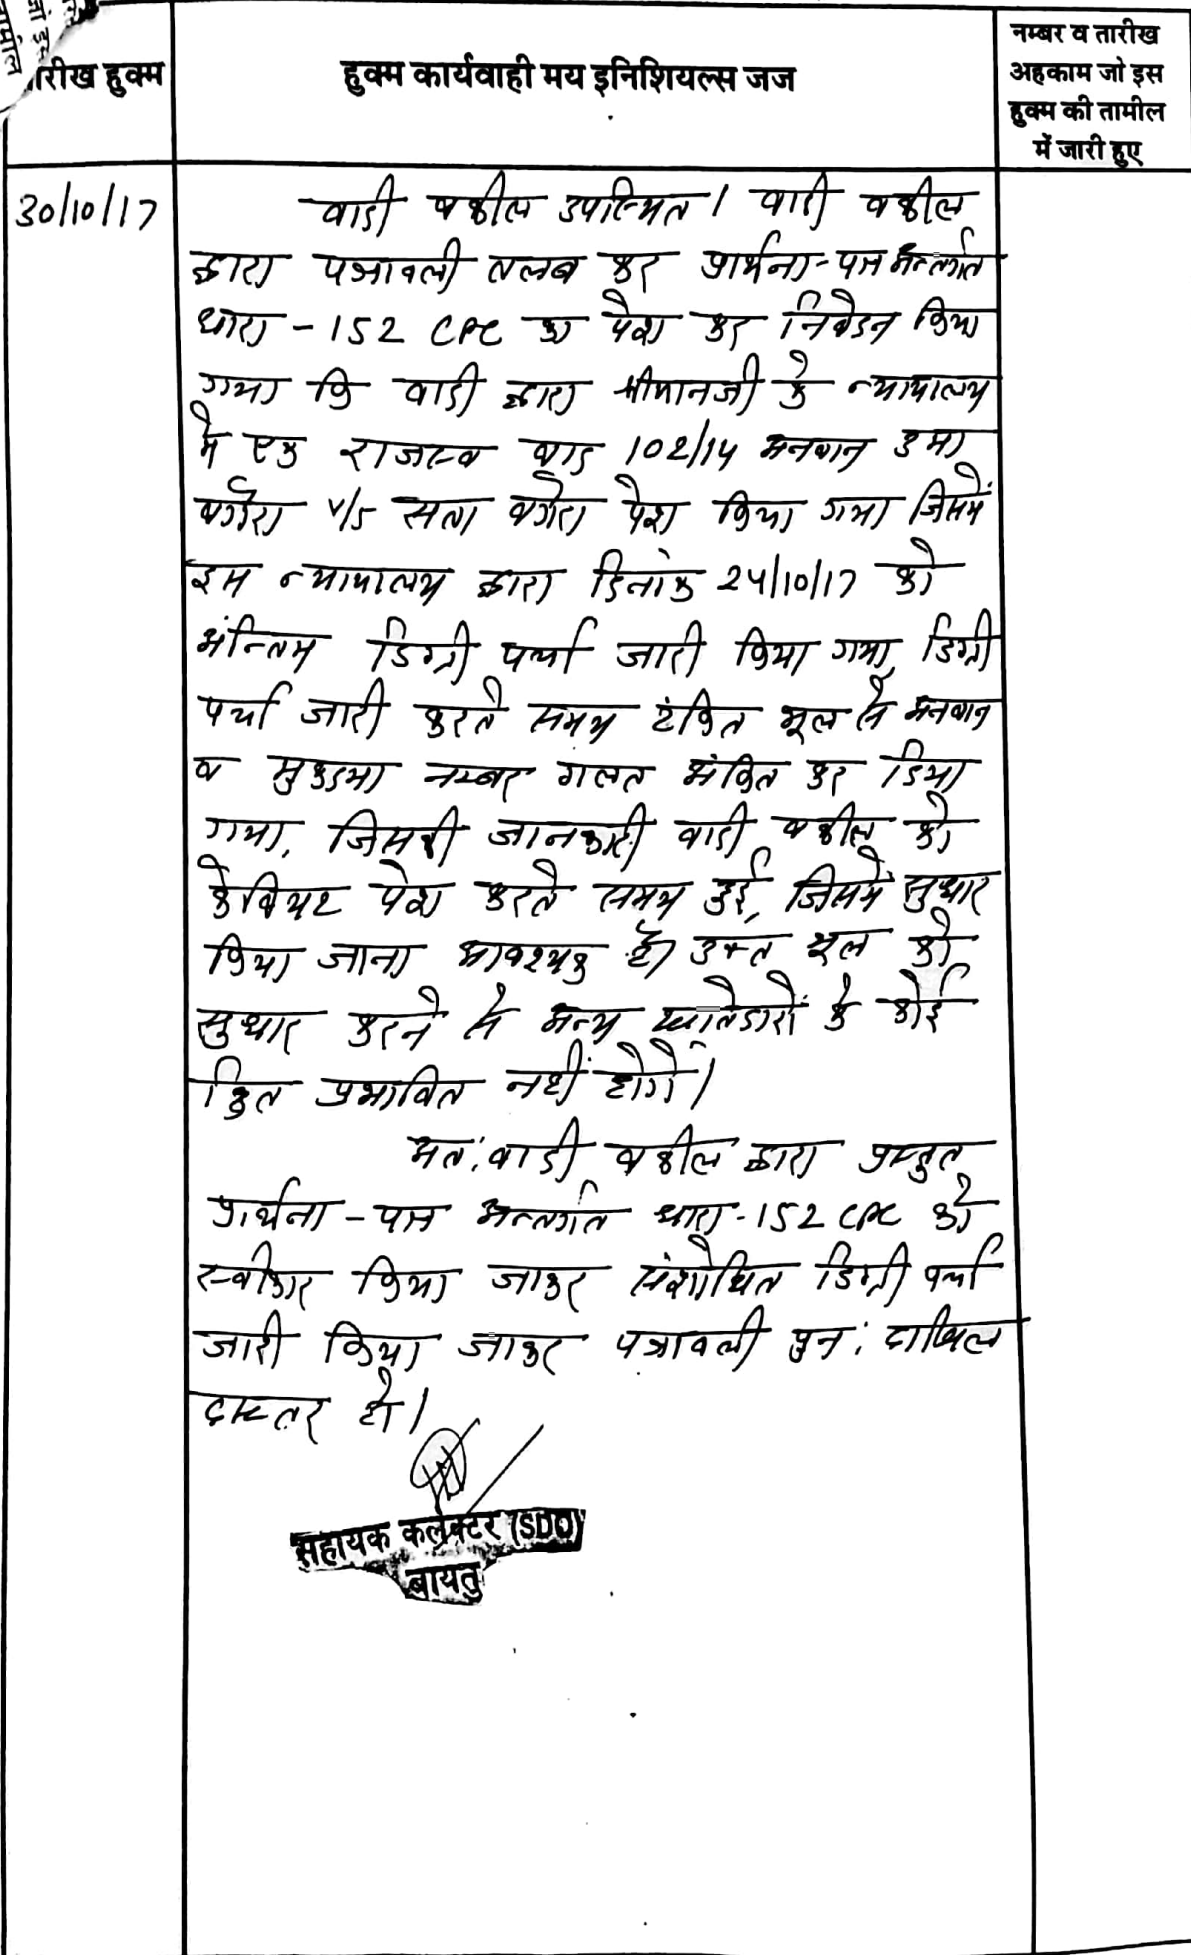 तारीख हुक्म
हुक्म कार्यवाही मय इनिशियल्स जज
नम्बर व तारीख
अहकाम जो इस
हुक्म की तामील
में जारी हुए
30/10/17
वादी वकील उपस्थित। वादी वकील
द्वारा पत्रावली तलब कर प्रार्थना-पत्र अन्तर्गत
धारा - 152 CPC का पेश कर निवेदन किया
गया कि वादी द्वारा श्रीमानजी के न्यायालय
मे एक राजस्व वाद 102/14 अनवान उमा
वगैरा v/s सता वगेरा पेश किया गया जिसमें
इस न्यायालय द्वारा दिनांक 24/10/17 को
अंन्तिम डिग्री पर्चा जारी किया गया, डिग्री
पर्चा जारी करते समय टंकित भूल से अनवान
व मुकदमा नम्बर गलत अंकित कर दिया
गया, जिसकी जानकारी वादी वकील को
केवियट पेश करते समय हुई, जिसमें सुधार
किया जाना आवश्यक है। उक्त भूल को
सुधार करने से अन्य खातेदारों के कोई
हित प्रभावित नहीं होगे।
अत: वादी वकील द्वारा प्रस्तुत
प्रार्थना - पत्र अन्तर्गत धारा - 152 CPC को
स्वीकार किया जाकर संशोधित डिग्री पर्चा
जारी किया जाकर पत्रावली पुन: दाखिल
दफ्तर हो।
सहायक कलेक्टर (SDO)
बायतु